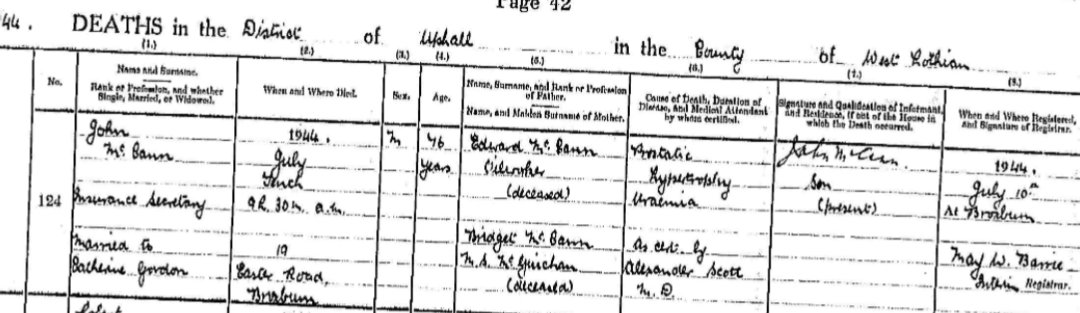 Page 42
44. DEATHS in the District of Uphall in the County of West Lothian
(1.) (2.) (3.) (4.) (5.) (6.) (7.) (8.)
No.
Name and Surname.
Rank or Profession, and whether
Single, Married, or Widowed.
When and Where Died.
Sex.
Age.
Name, Surname, and Rank or Profession
of Father.
Name, and Maiden Surname of Mother.
Cause of Death, Duration of
Disease, and Medical Attendant
by whom certified.
Signature and Qualification of Informant,
and Residence, if out of the House in
which the Death occurred.
When and Where Registered,
and Signature of Registrar.
124
John
McCann
Insurance Secretary
Married to
Catherine Gordon
1944.
July
Tenth
9h. 30m. a.m.
19
Easter Road,
Broxburn
M
76
years
Edward McCann
Oilworker
(deceased)
Bridget McCann
M.S. McGuichan
(deceased)
Prostatic
Hypertrophy
Uraemia
As cert. by
Alexander Scott
M.D
John McCann
Son
(present)
1944.
July 10th
At Broxburn
May W. Barrie
Interim Registrar.